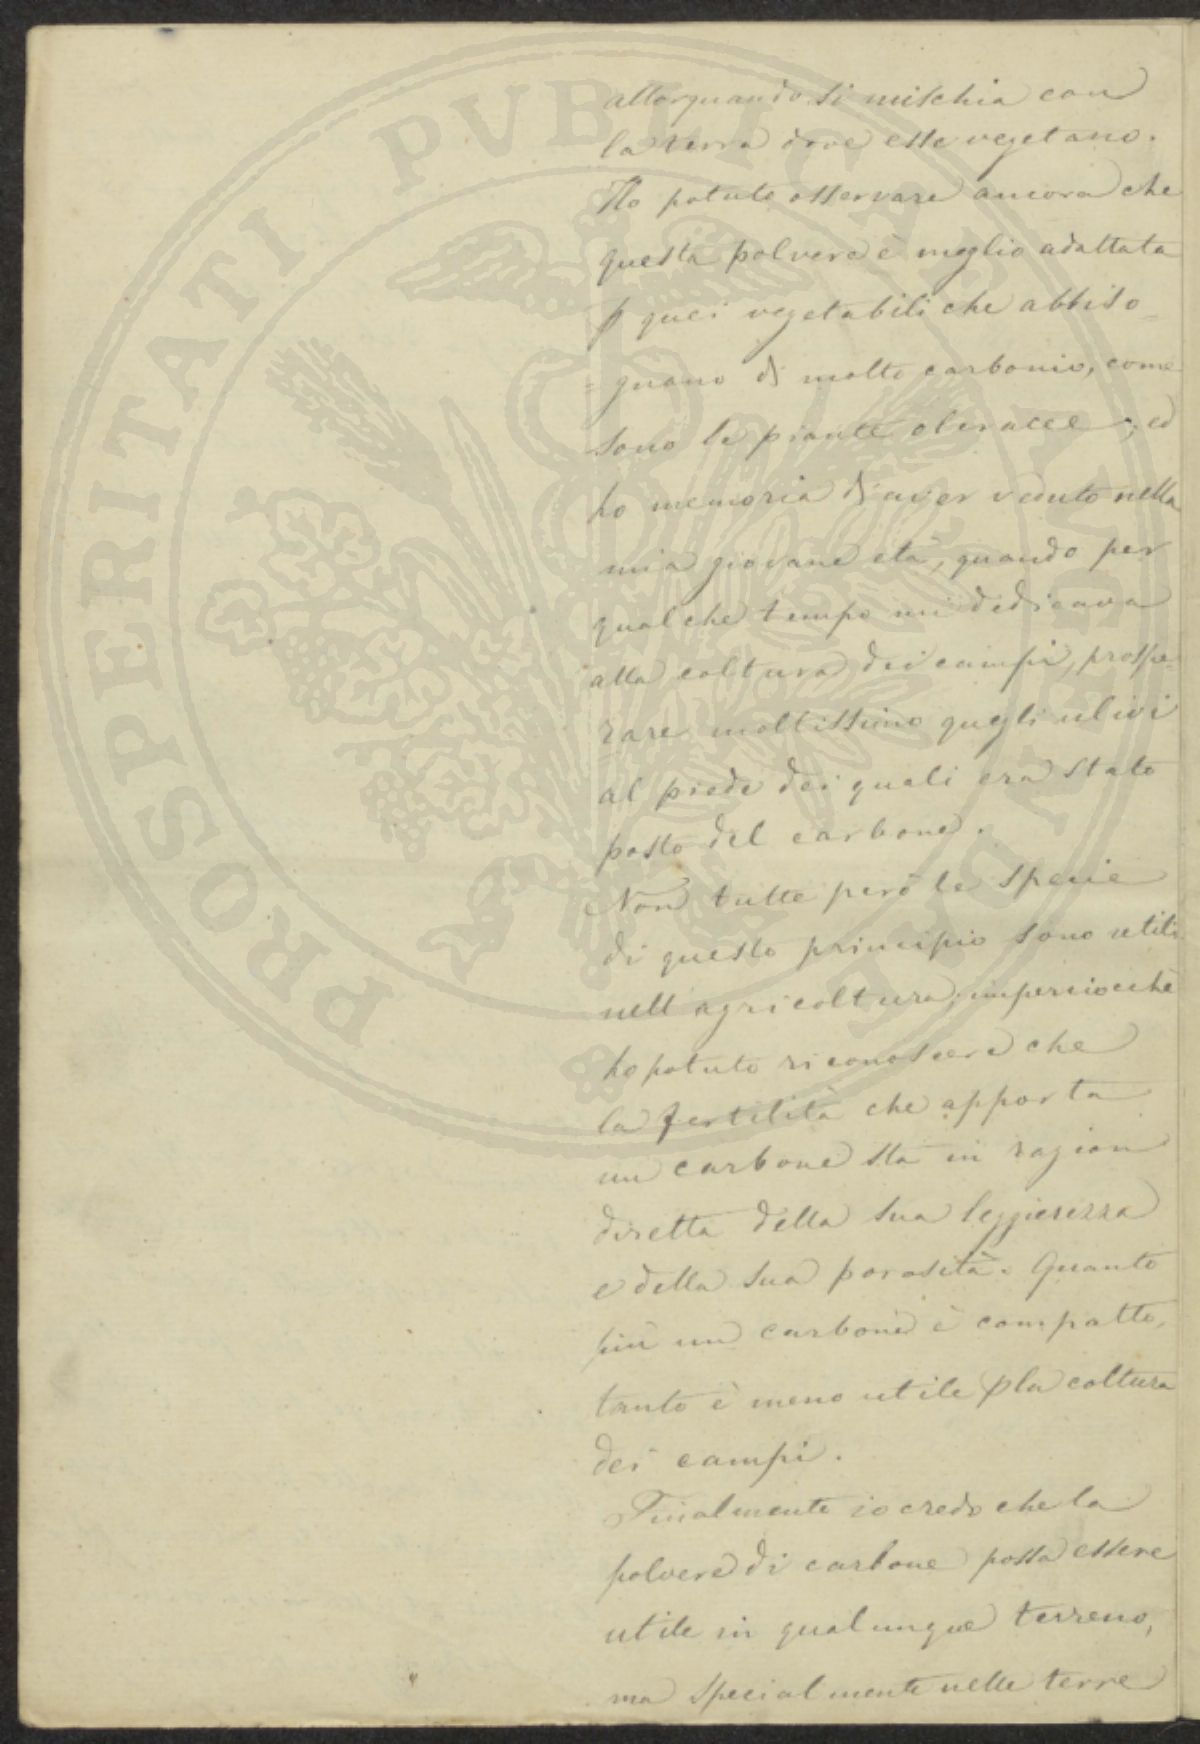 allorquando si mischia con
la terra dove esse vegetano.
Ho potuto osservare ancora che
questa polvere è meglio adattata
p quei vegetabili che abbiso=
=gnano di molto carbonio, come
sono le piante oleracee; ed
ho memoria di aver veduto nella
mia giovane età, quando per
qualche tempo mi dedicava
alla coltura dei campi, prospe=
rare moltissimo quegli ulivi
al piede dei quali era stato
posto del carbone.
Non tutte però le specie
di questo principio sono utili
nell'agricoltura; imperciocchè
ho potuto riconoscere che
la fertilità che apporta
un carbone sta in ragion
diretta della sua leggierezza
e della sua porosità. Quanto
più un carbone è compatto,
tanto è meno utile p la coltura
dei campi.
Finalmente io credo che la
polvere di carbone possa essere
utile in qualunque terreno,
ma specialmente nelle terre
PROSPERITATI PVBLICAE AVGENDAE